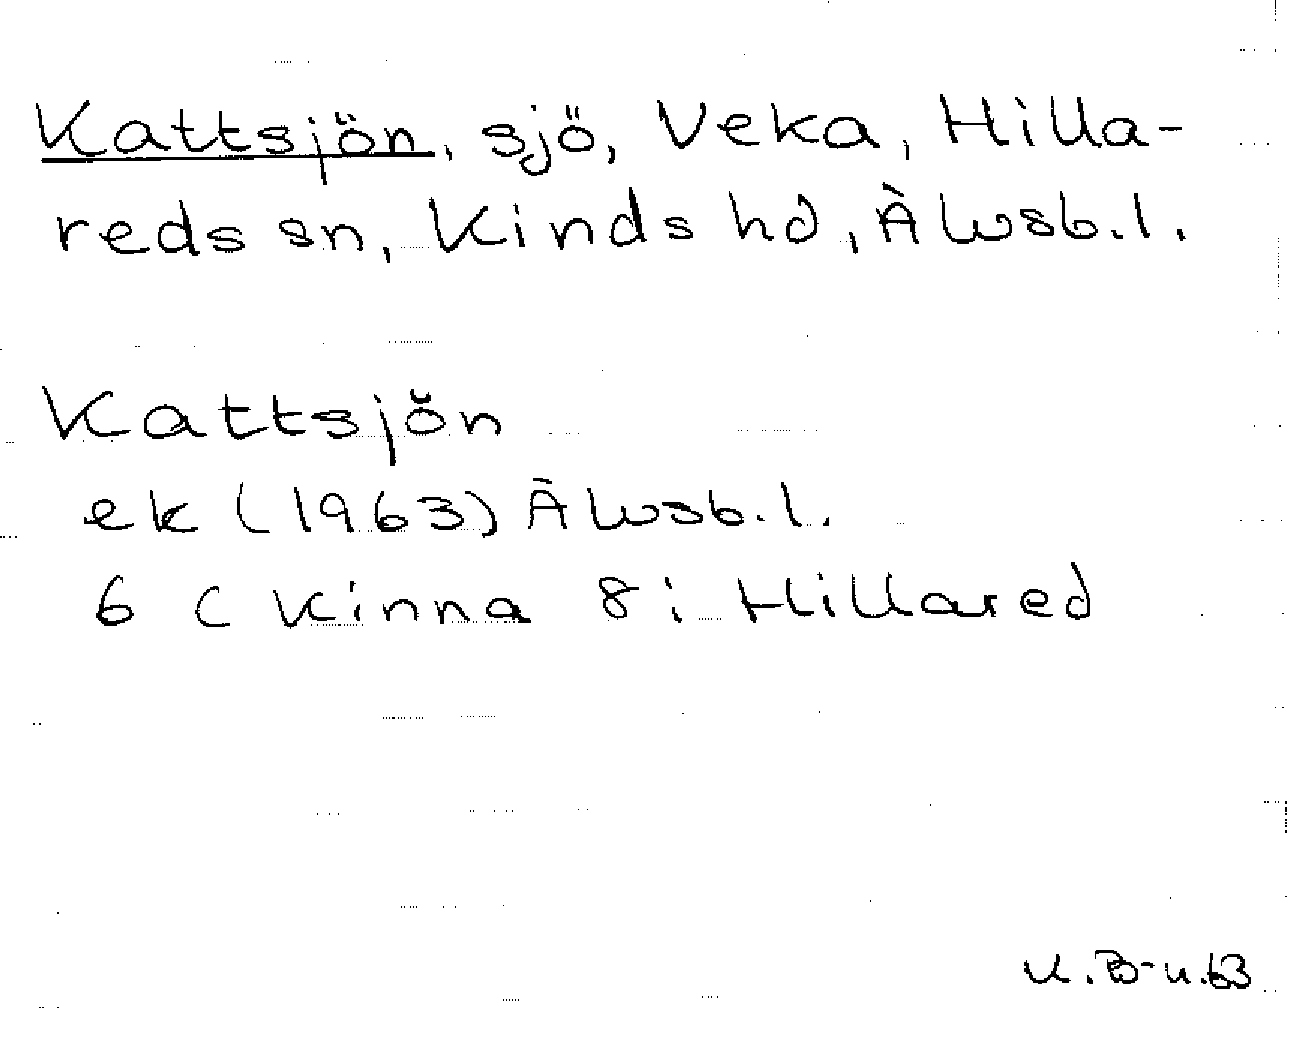 Kattsjön, sjö, Veka, Hilla-
reds sn, Kinds hd, Älvsb.l.
Kattsjön
ek (1963) Älvsb.l.
6 C Kinna 8i Hillared
K.B-n.63